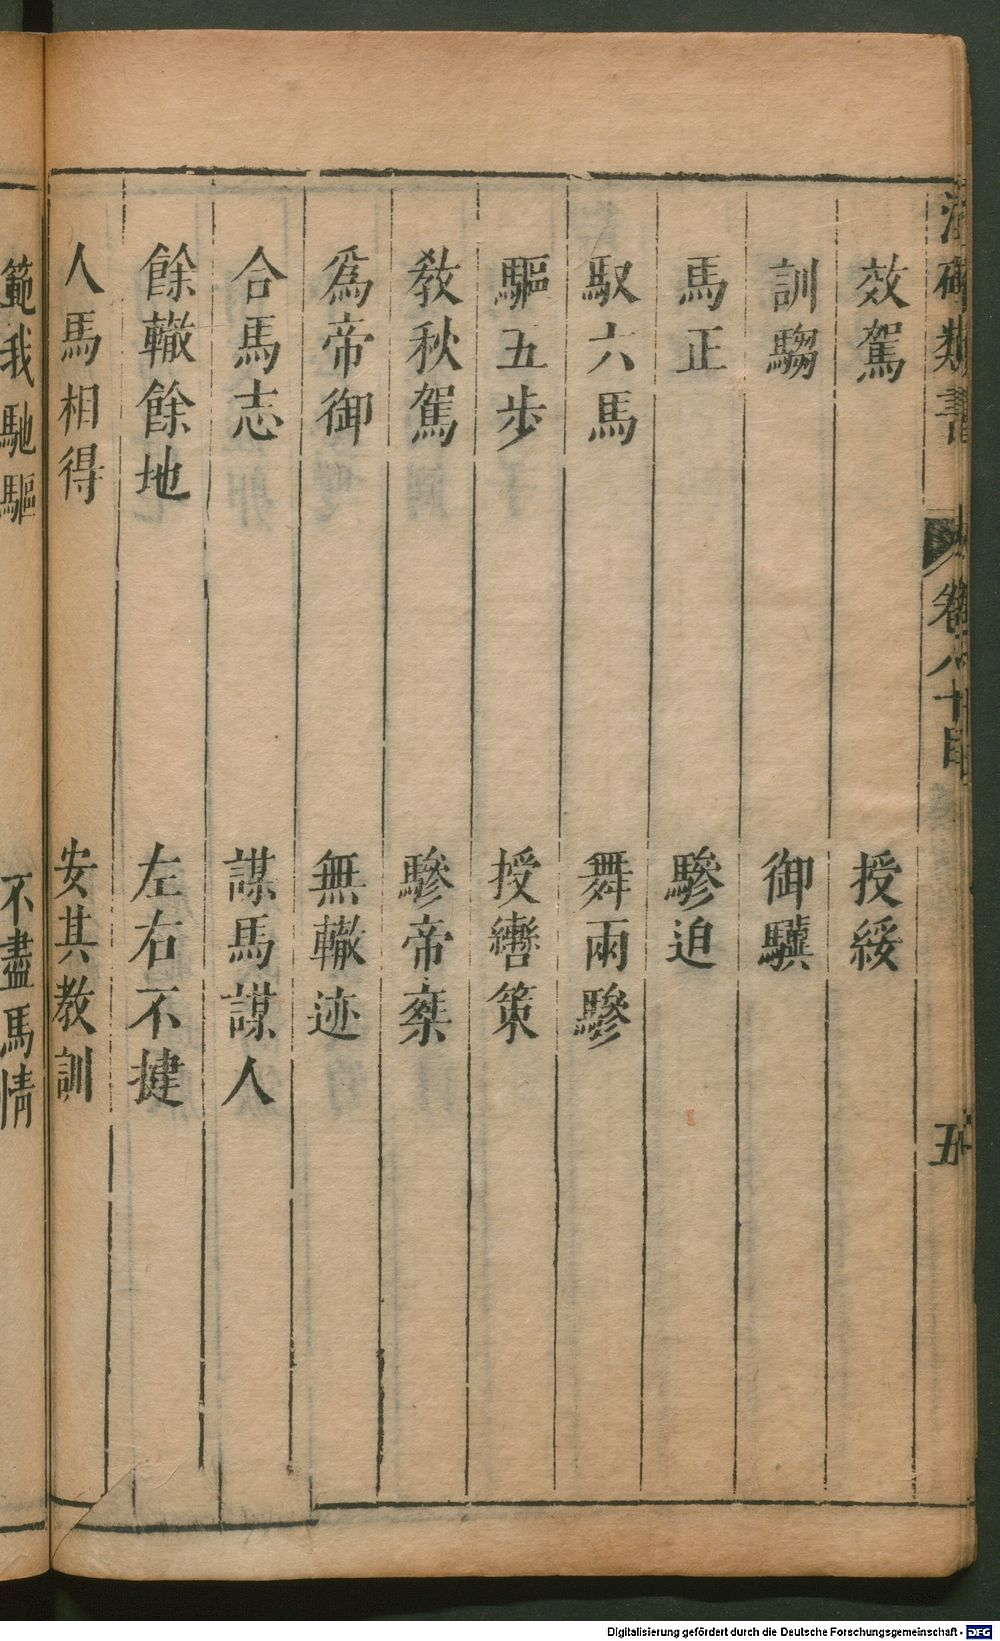 類書
卷八十目
五
效駕　授綏
訓騶　御驥
馬正　驂迫
馭六馬　舞兩驂
驅五步　授轡策
教秋駕　驂帝棄
爲帝御　無轍迹
合馬志　謀馬謀人
餘轍餘地　左右不揵
人馬相得　安其教訓
範我馳驅　不盡馬情
Digitalisierung gefördert durch die Deutsche Forschungsgemeinschaft - DFG